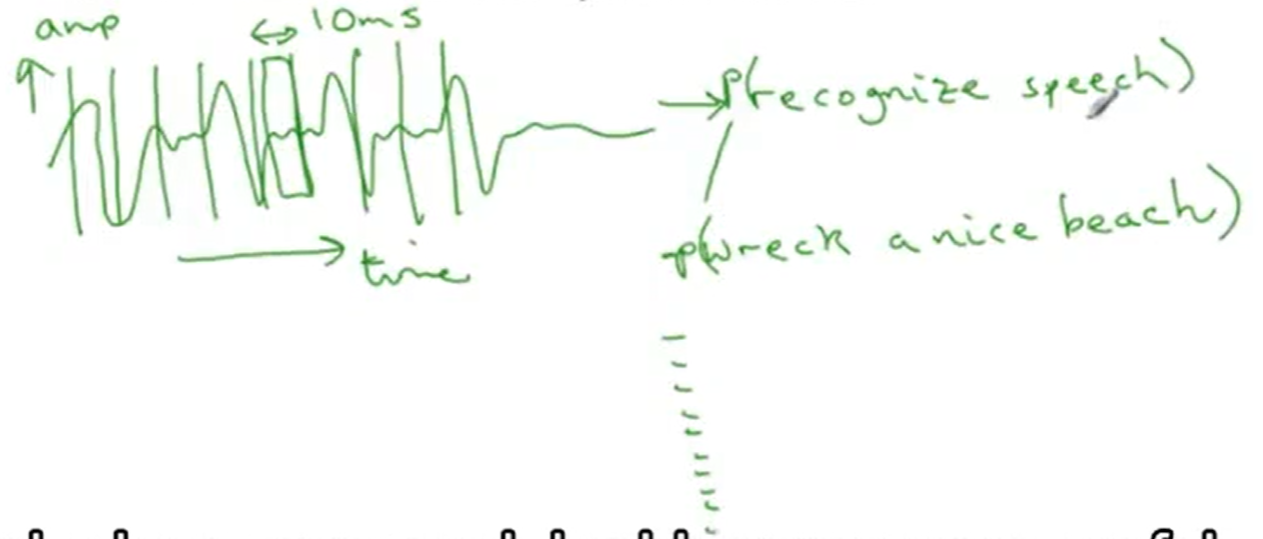 amp
10ms
p(recognize speech)
p(wreck a nice beach)
time